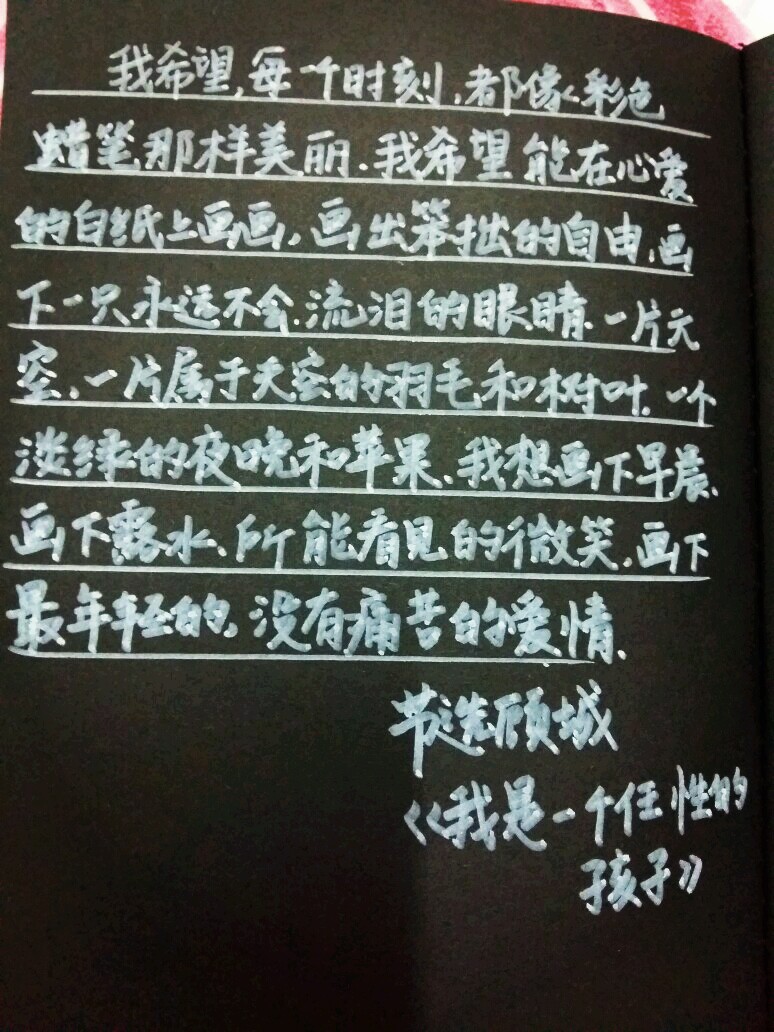 我希望,每一个时刻,都像彩色
蜡笔那样美丽.我希望能在心爱
的白纸上画画,画出笨拙的自由,画
下一只永远不会.流泪的眼睛.一片天
空,一片属于天空的羽毛和树叶.一个
淡绿的夜晚和苹果.我想画下早晨.
画下露水.所能看见的微笑.画下
最年轻的,没有痛苦的爱情.
节选顾城
《我是一个任性的
孩子》